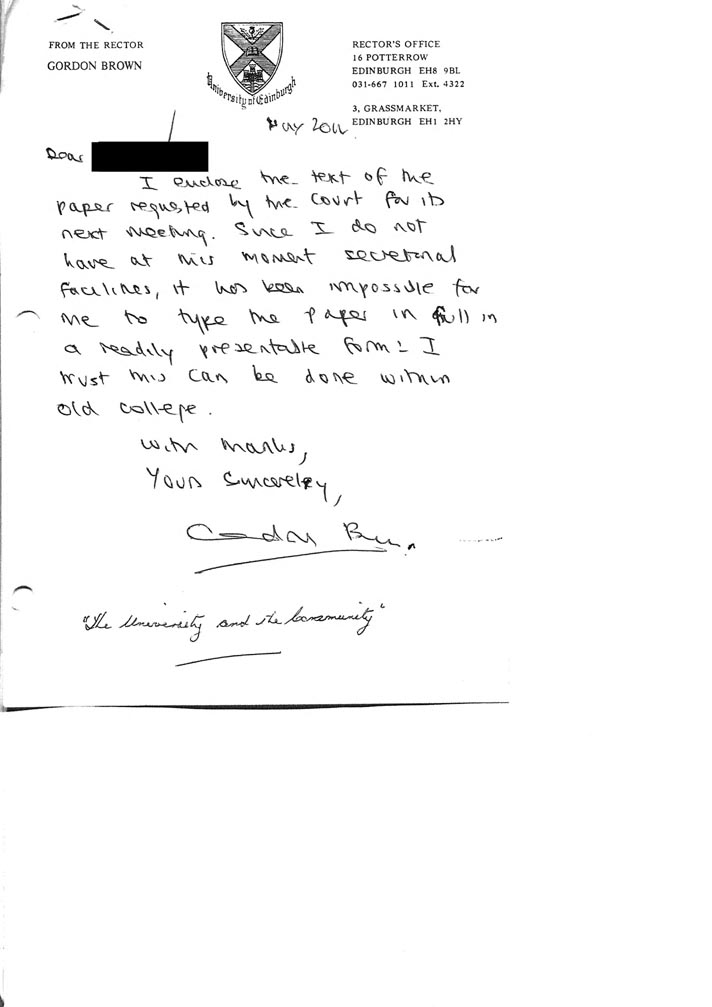 FROM THE RECTOR
GORDON BROWN
University of Edinburgh
RECTOR'S OFFICE
16 POTTERROW
EDINBURGH EH8 9BL
031-667 1011 Ext. 4322
3, GRASSMARKET,
EDINBURGH EH1 2HY
May
Dear
I enclose the text of the
paper requested by the Court for its
next meeting. Since I do not
have at this moment secretarial
facilities, it has been impossible for
me to type the paper in full in
a readily presentable form : I
trust this can be done within
old college.
With thanks,
Yours Sincerely,
Gordon Brown
"The University and the Community"